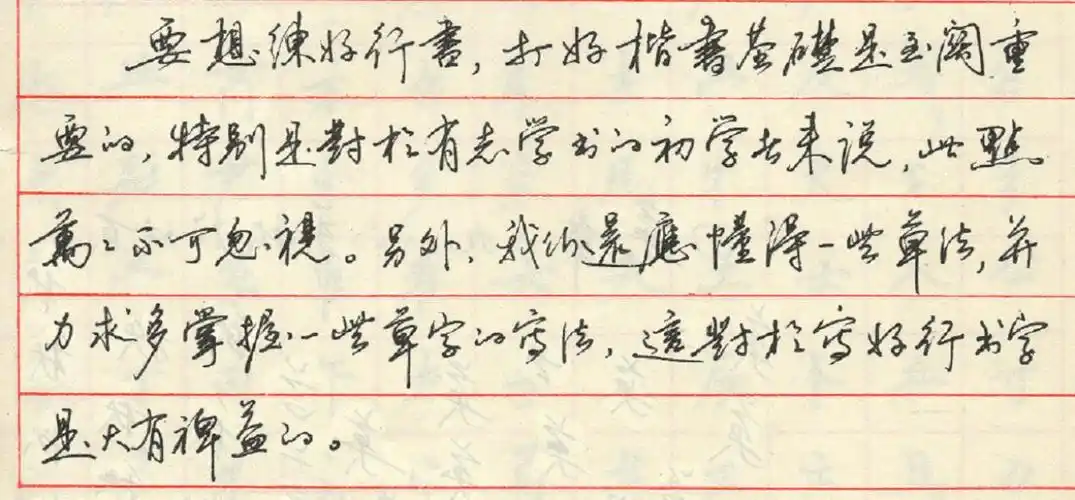 要想練好行書，打好楷書基礎是至關重
要的，特别是對於有志学书的初学者来说，此點
萬々不可忽視。另外，我们還應懂得一些草法，并
力求多掌握一些草字的写法，這對於写好行书字
是大有裨益的。